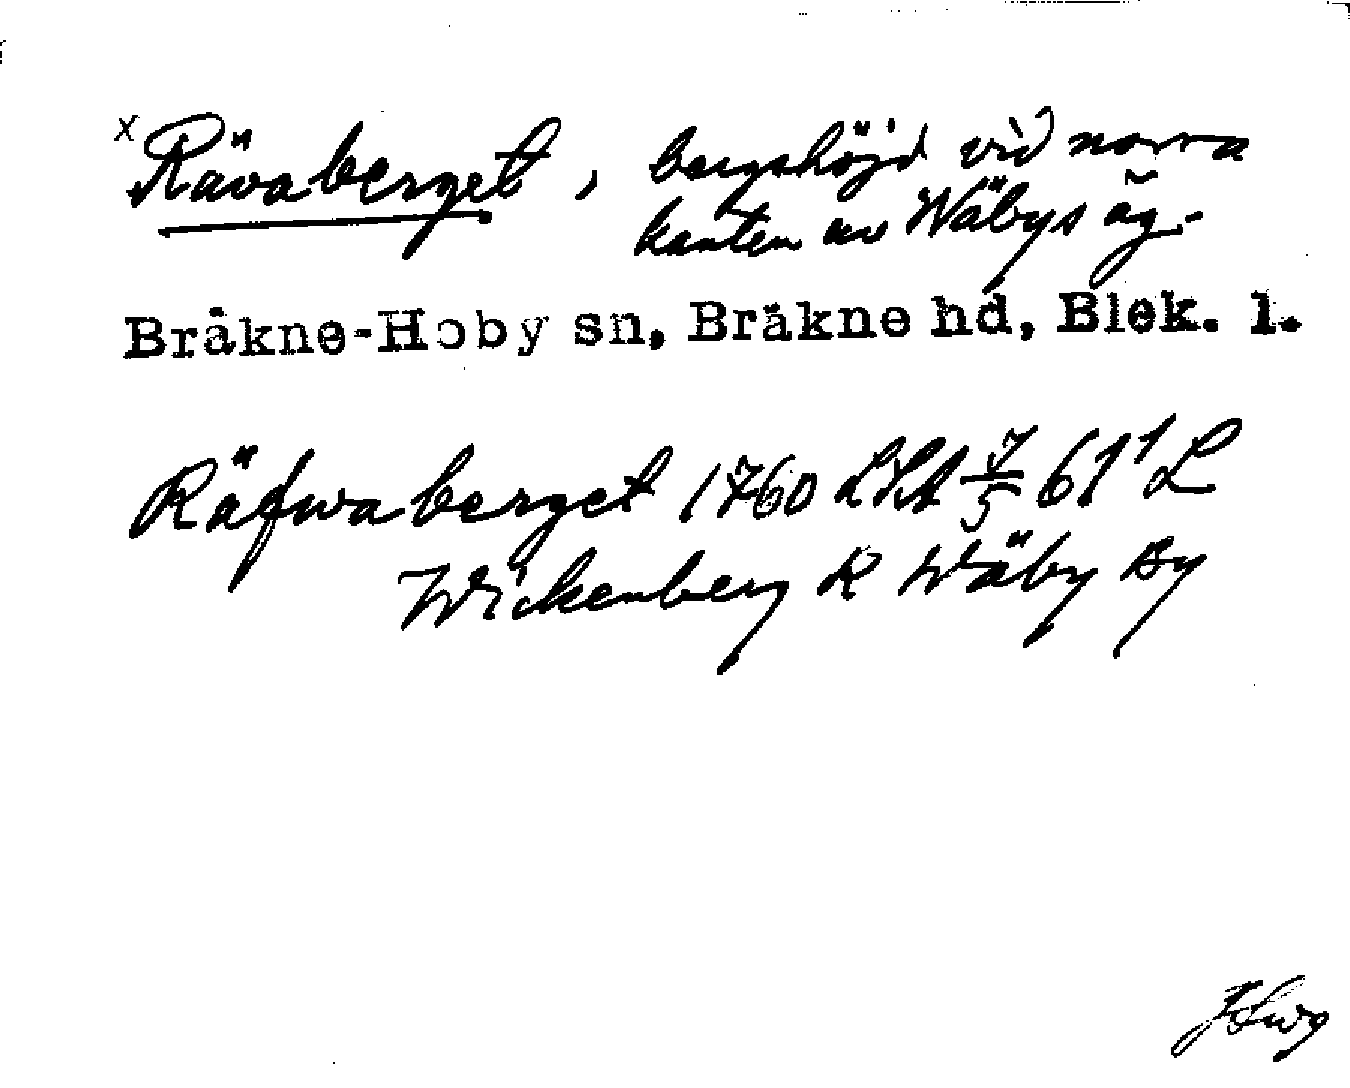 x Rävaberget, bergshöjd vid norra
kanten av Wäbys äg.
Bräkne-Hoby sn, Bräkne hd, Blek. l.
Räfwaberget 1760 LSA 7/5 61¹ L
Wickenberg R Wäby By